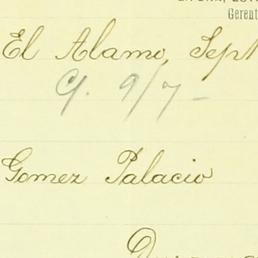 Gerent
El Alamo, Sept
C. 9/7-
Gomez Palacio